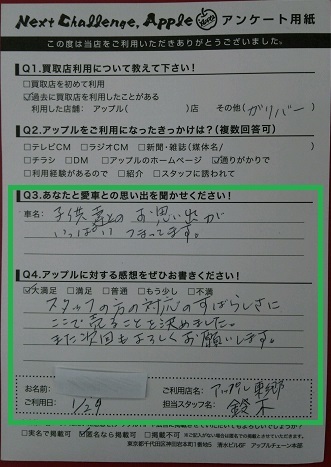 Next Challenge, Apple アンケート用紙
この度は当店をご利用いただきありがとうございました。
Q1.買取店利用について教えて下さい!
□買取店を初めて利用
☑過去に買取店を利用したことがある
利用した店舗: アップル( )店 その他(ガリバー)
Q2.アップルをご利用になったきっかけは?(複数回答可)
□テレビCM □ラジオCM □新聞・雑誌(媒体名/ )
□チラシ □DM □アップルのホームページ ☑通りがかりで
□利用経験があるので □紹介 □スタッフに誘われて
Q3.あなたと愛車との思い出を聞かせください!
車名: 子供達とのお思い出が
いっぱいつまってます。
Q4.アップルに対する感想をぜひお書きください!
☑大満足 □満足 □普通 □もう少し □不満
スタッフの方の対応のすばらしさに
ここで売ることを決めました。
また次回もよろしくお願いします。
お名前:
ご利用店名: アップル東郷
ご利用日: 1/29
担当スタッフ名: 鈴木
□実名で掲載可 ☑匿名なら掲載可 □掲載不可
東京都千代田区神田岩本町1番地 清水ビル6F アップルチェーン本部